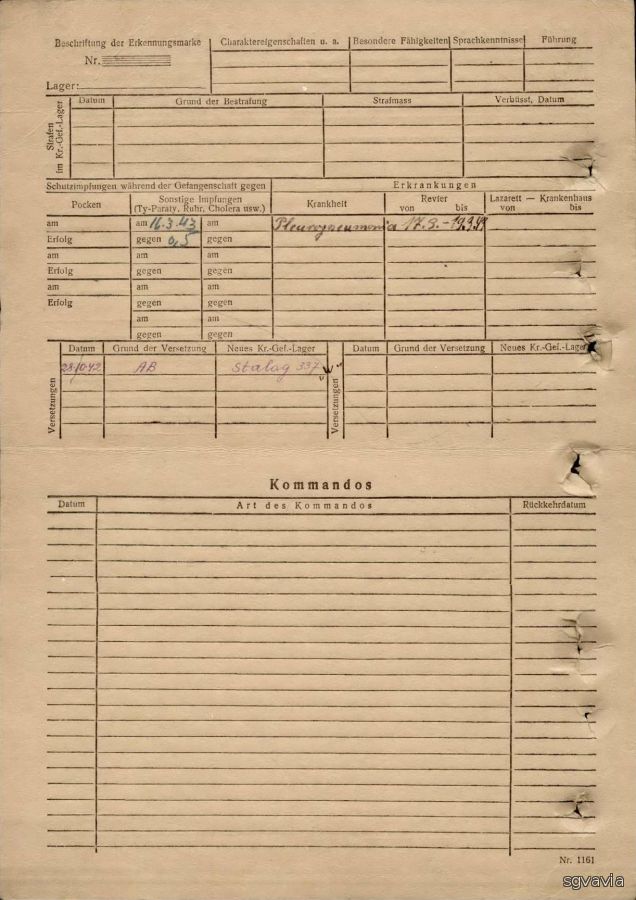 Beschriftung der Erkennungsmarke
Nr.
Lager:
Charaktereigenschaften u. a.
Besondere Fähigkeiten
Sprachkenntnisse
Führung
Strafen im Kr.-Gef.-Lager
Datum
Grund der Bestrafung
Strafmass
Verbüsst, Datum
Schutzimpfungen während der Gefangenschaft gegen
Erkrankungen
Pocken
Sonstige Impfungen
(Ty-Paraty, Ruhr, Cholera usw.)
Krankheit
Revier
von bis
Lazarett — Krankenhaus
von bis
am am 16.3.43 am Pleuropneumonia 17.3.-
Erfolg gegen 0,5 gegen
am am am
Erfolg gegen gegen
am am am
Erfolg gegen gegen
am am
gegen gegen
Versetzungen
Datum Grund der Versetzung Neues Kr.-Gef.-Lager
28.10.42 AB Stalag 337
Versetzungen
Datum Grund der Versetzung Neues Kr.-Gef.-Lager
Kommandos
Datum Art des Kommandos Rückkehrdatum
Nr. 1161
sgvavia